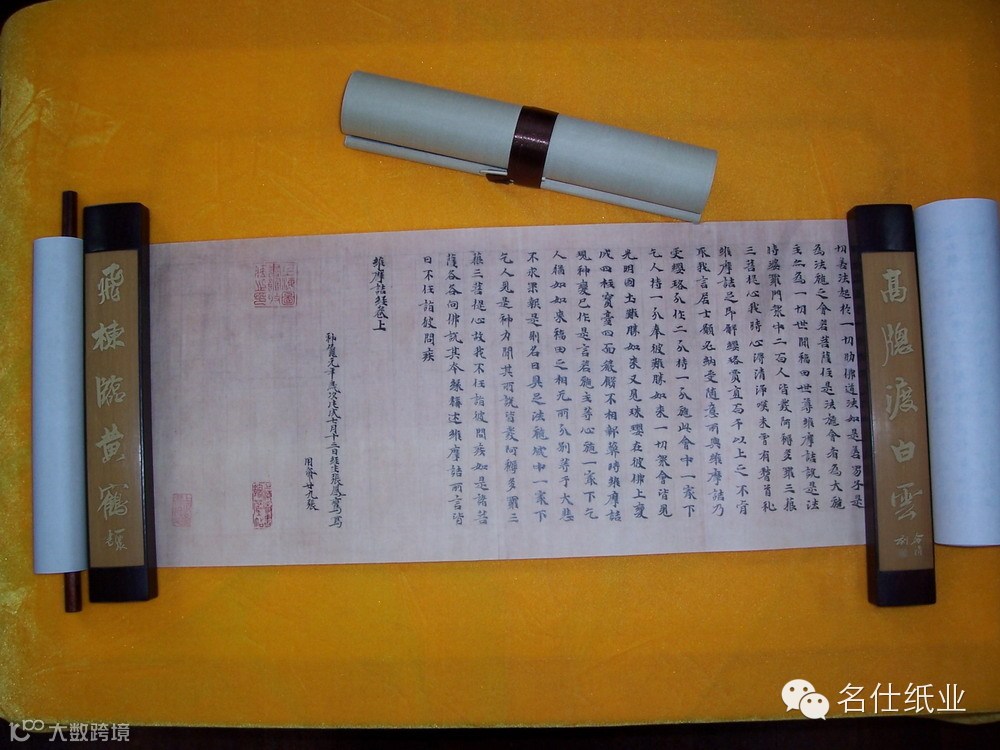 切善法起於一切助佛道法如是善男子是
為法施之會若菩薩住是法施會者為大施
主亦為一切世間福田世尊維摩詰說是法
時婆羅門眾中二百人皆發阿耨多羅三藐
三菩提心我時心得清淨歎未曾有稽首礼
維摩詰足即解瓔珞賈直百千以上之不肯
取我言居士願必納受隨意所與維摩詰乃
受瓔珞分作二分持一分施此會中一最下
乞人持一分奉彼難勝如來一切眾會皆見
光明國土難勝如來又見珠瓔在彼佛上變
成四柱寶臺四面嚴飾不相鄣蔽時維摩詰
現神變已作是言若施主等心施一最下乞
人猶如如來福田之相无所分別等于大悲
不求果報是則名曰具足法施城中一最下
乞人見是神力聞其所說皆發阿耨多羅三
藐三菩提心故我不任詣彼問疾如是諸菩
薩各各向佛說其本緣稱述維摩詰所言皆
曰不任詣彼問疾
維摩詰經卷上
神龍元年歲次 七月十三日經生張鳳鸞寫
用紙廿九張
高隐渡白雲
飛棟臨黃鶴
名仕纸业
大数跨境